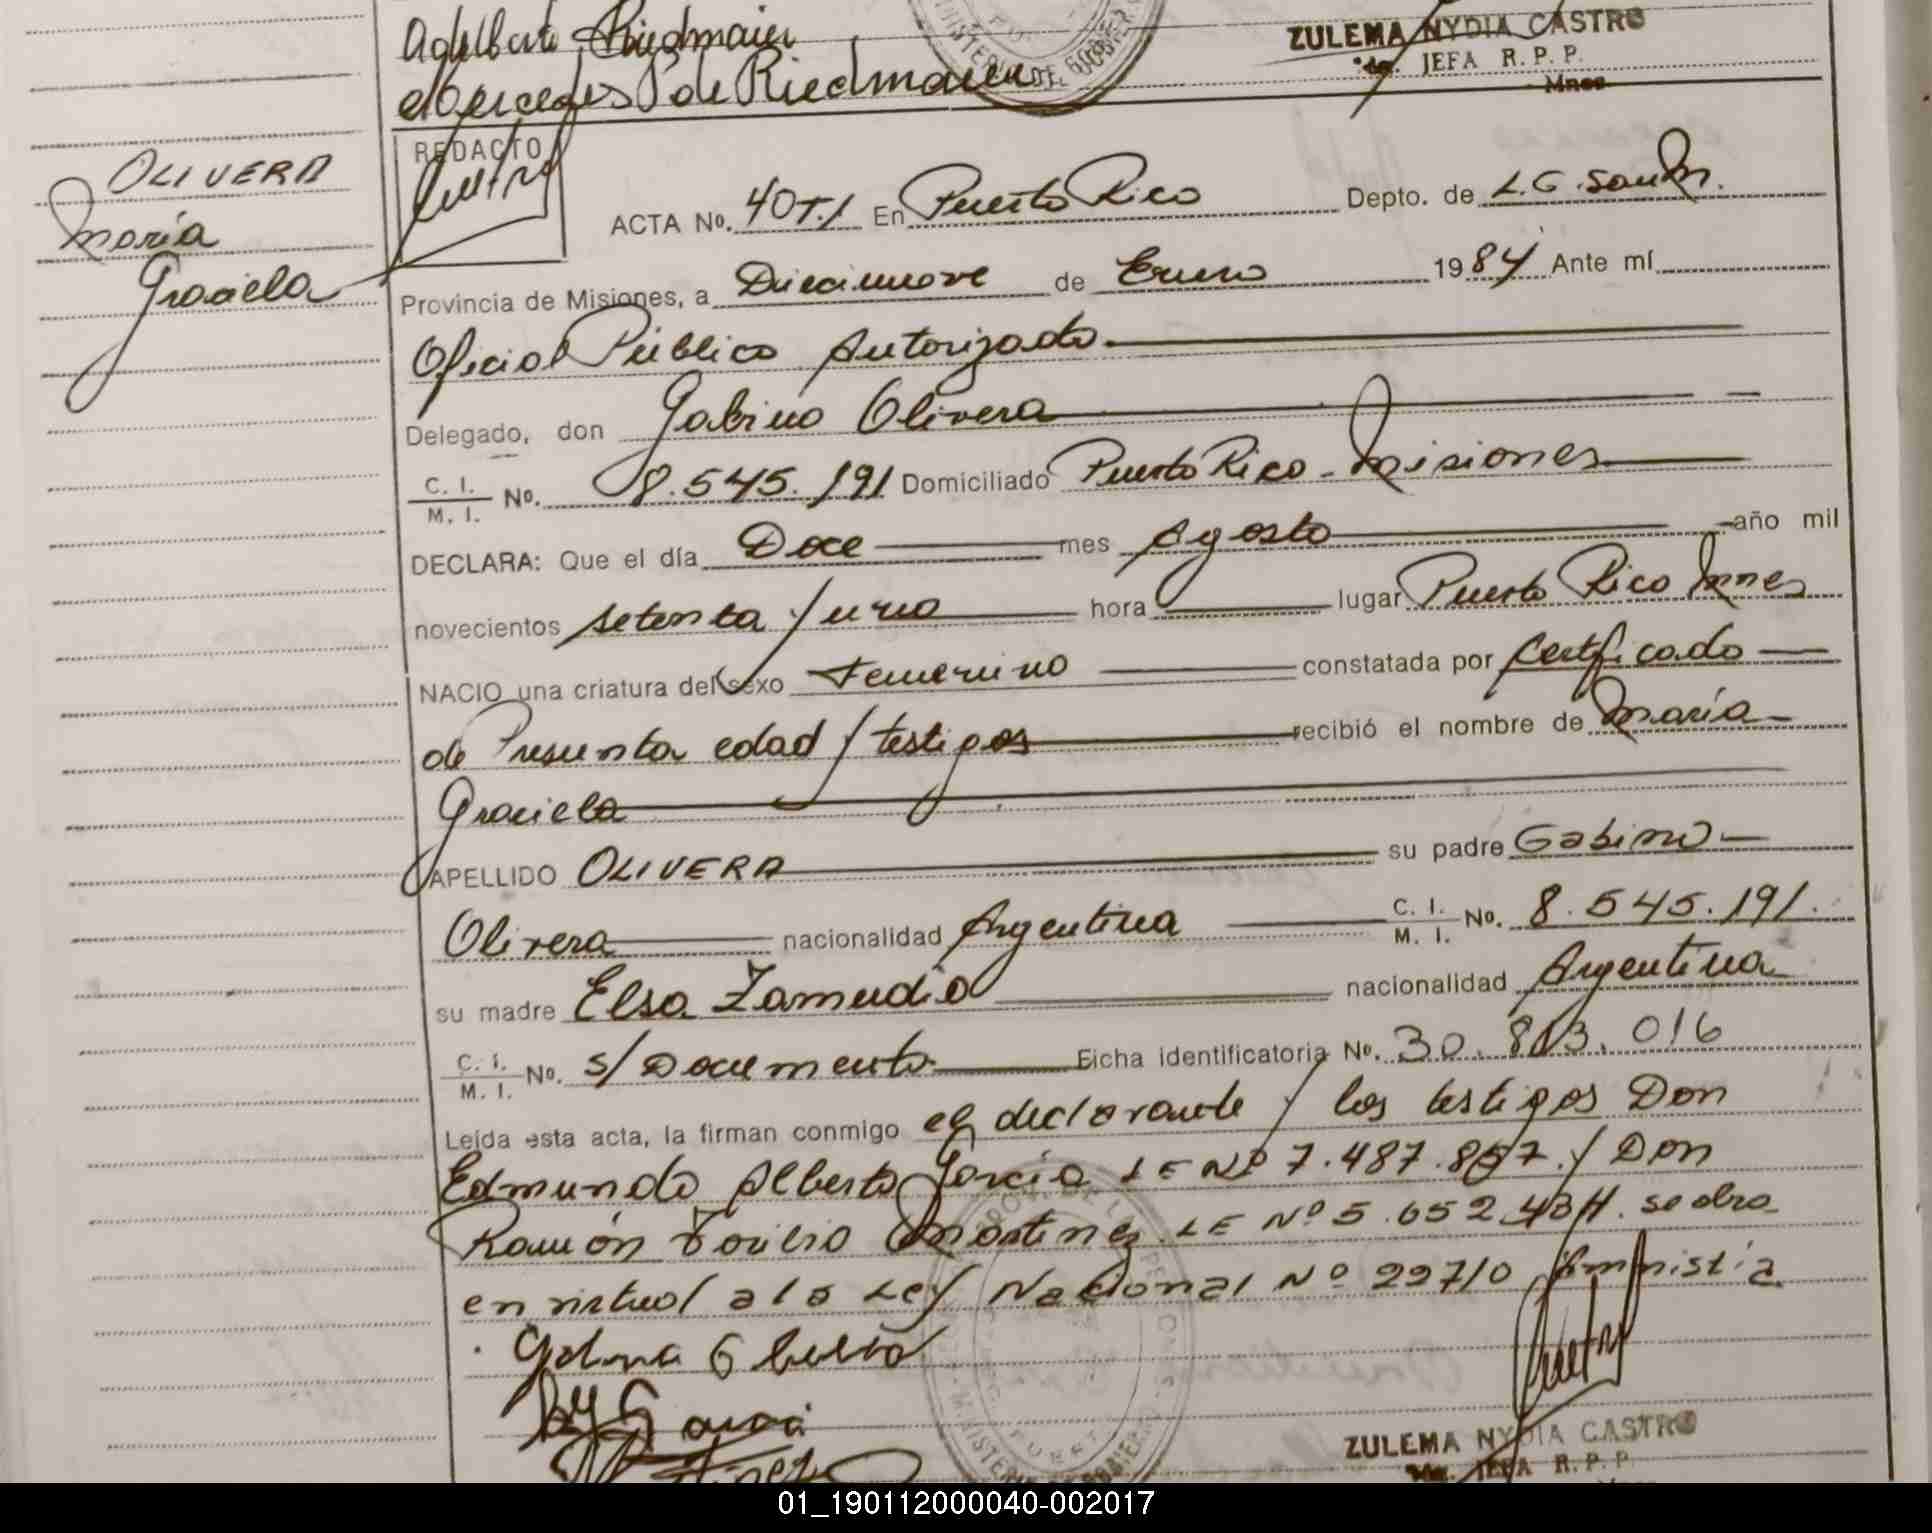 Adelberto Riedmaier
Mercedes P de Riedmaier
ZULEMA NYDIA CASTRO
JEFA R. P. P.
Mnes
REDACTO
OLIVERA
María
Graciela
ACTA No. 40 T.I En Puerto Rico Depto. de L.G. San M.
Provincia de Misiones, a Diecinueve de Enero 1984 Ante mí
Oficial Público Autorizado
Delegado, don Gabino Olivera
C. I. / M. I. No. 8.545.191 Domiciliado Puerto Rico - Misiones
DECLARA: Que el día Doce mes Agosto año mil
novecientos setenta y uno hora lugar Puerto Rico Mnes
NACIO una criatura del sexo Femenino constatada por certificado
de Presunta edad y testigos recibió el nombre de María
Graciela
APELLIDO OLIVERA su padre Gabino
Olivera nacionalidad Argentina C. I. / M. I. No. 8.545.191.
su madre Elsa Zamudio nacionalidad Argentina
C. I. / M. I. No. s/Documento Ficha identificatoria No. 30.813.016
Leída esta acta, la firman conmigo el declarante y los testigos Don
Edmundo Alberto García LE Nº 7.487.857. y Don
Ramón Toribio Martinez LE Nº 5.652.434. se labra
en virtud a la Ley Nacional Nº 22710 Amnistía
ZULEMA NYDIA CASTRO
JEFA R. P. P.
01_190112000040-002017